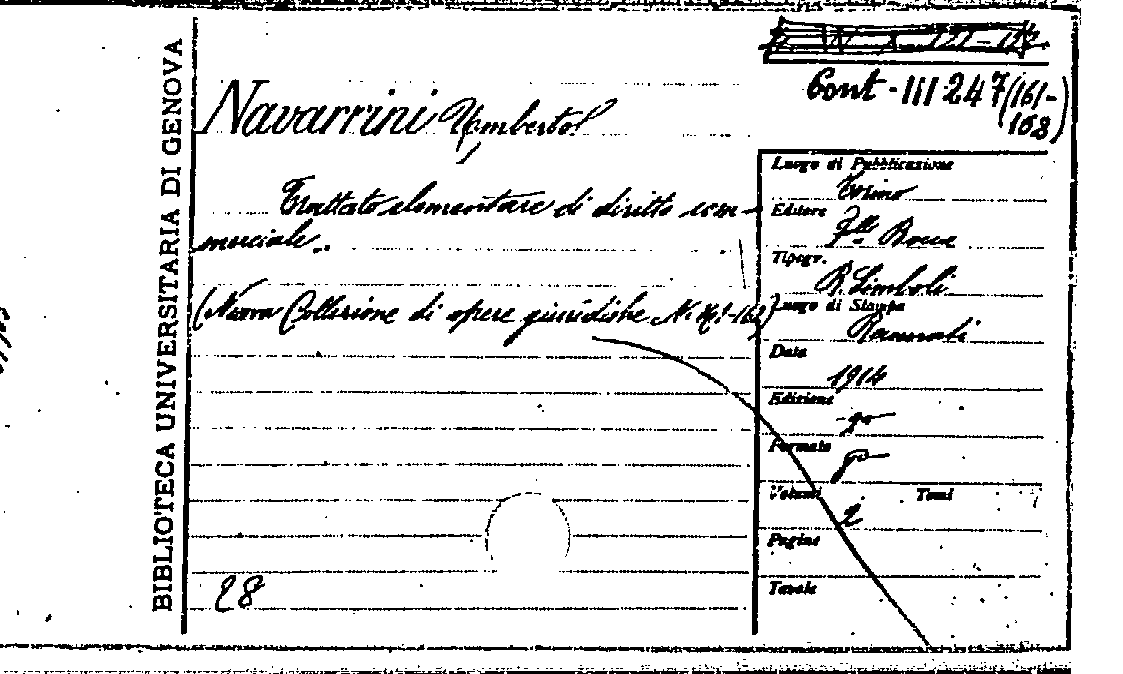 BIBLIOTECA UNIVERSITARIA DI GENOVA
Cont - III 247 (161-
162)
Navarrini Umberto
Trattato elementare di diritto com-
merciale.
(Nuova Collezione di opere giuridiche N. 161-162)
28
Luogo di Pubblicazione
Torino
Editore
F.lli Bocca
Tipogr.
Luogo di Stampa
Data
1914
Edizione
Formato
8°
Volumi Tomi
2
Pagine
Tavole